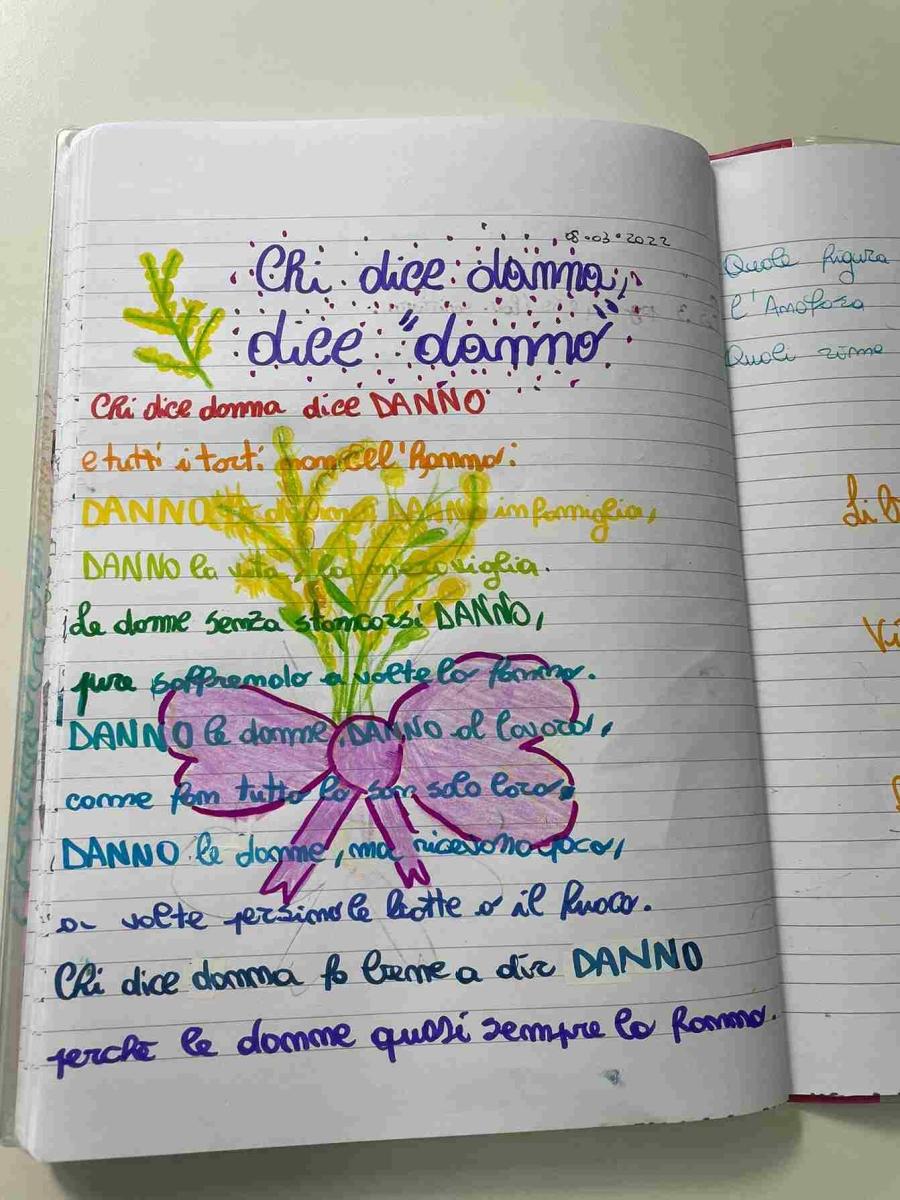 08.03.2022
Chi dice donna,
dice "danno"
Chi dice donna dice DANNO
e tutti i torti non ce l'hanno:
DANNO DANNO in famiglia,
DANNO la vita, la meraviglia.
Le donne senza stancarsi DANNO,
pure soffrendo a volte lo fanno.
DANNO le donne, DANNO al lavoro,
come fan tutto lo san solo loro.
DANNO le donne, ma ricevono poco,
a volte persino le botte o il fuoco.
Chi dice donna fa bene a dir DANNO
perchè le donne quasi sempre lo fanno.
Quale figura
l'Anafora
Quali rime